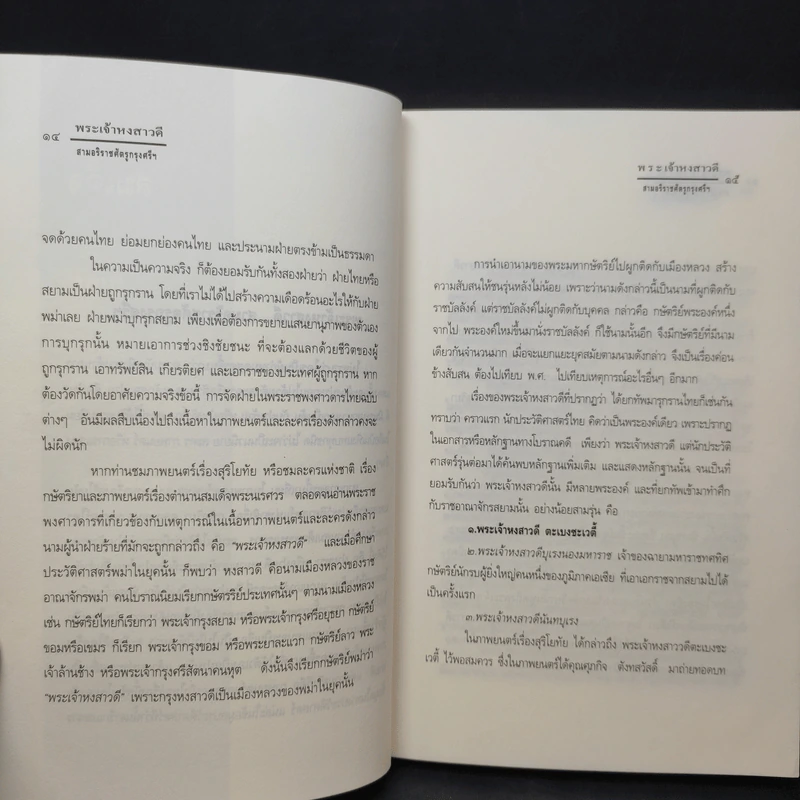 ๑๔
พระเจ้าหงสาวดี
สามอริราชศัตรูกรุงศรีฯ
จดด้วยคนไทย ย่อมยกย่องคนไทย และประณามฝ่ายตรงข้ามเป็นธรรมดา
ในความเป็นความจริง ก็ต้องยอมรับกันทั้งสองฝ่ายว่า ฝ่ายไทยหรือ
สยามเป็นฝ่ายถูกรุกราน โดยที่เราไม่ได้ไปสร้างความเดือดร้อนอะไรให้กับฝ่าย
พม่าเลย ฝ่ายพม่าบุกรุกสยาม เพียงเพื่อต้องการขยายแสนยานุภาพของตัวเอง
การบุกรุกนั้น หมายเอาการช่วงชิงชัยชนะ ที่จะต้องแลกด้วยชีวิตของผู้
ถูกรุกราน เอาทรัพย์สิน เกียรติยศ และเอกราชของประเทศผู้ถูกรุกราน หาก
ต้องวัดกันโดยอาศัยความจริงข้อนี้ การจัดฝ่ายในพระราชพงศาวดารไทยฉบับ
ต่างๆ อันมีผลสืบเนื่องไปถึงเนื้อหาในภาพยนตร์และละครเรื่องดังกล่าวคงจะ
ไม่ผิดนัก
หากท่านชมภาพยนตร์เรื่องสุริโยทัย หรือชมละครแห่งชาติ เรื่อง
กษัตริยาและภาพยนตร์เรื่องตำนานสมเด็จพระนเรศวร ตลอดจนอ่านพระราช
พงศาวดารที่เกี่ยวข้องกับเหตุการณ์ในเนื้อหาภาพยนตร์และละครดังกล่าว
นามผู้นำฝ่ายร้ายที่มักจะถูกกล่าวถึง คือ “พระเจ้าหงสาวดี” และเมื่อศึกษา
ประวัติศาสตร์พม่าในยุคนั้น ก็พบว่า หงสาวดี คือนามเมืองหลวงของราช
อาณาจักรพม่า คนโบราณนิยมเรียกกษัตรริย์ประเทศนั้นๆ ตามนามเมืองหลวง
เช่น กษัตริย์ไทยก็เรียกว่า พระเจ้ากรุงสยาม หรือพระเจ้ากรุงศรีอยุธยา กษัตริย์
ขอมหรือเขมร ก็เรียก พระเจ้ากรุงขอม หรือพระยาละแวก กษัตริย์ลาว พระ
เจ้าล้านช้าง หรือพระเจ้ากรุงศรีสัตนาคนหุต ดังนั้นจึงเรียกกษัตริย์พม่าว่า
“พระเจ้าหงสาวดี” เพราะกรุงหงสาวดีเป็นเมืองหลวงของพม่าในยุคนั้น
พระเจ้าหงสาวดี
สามอริราชศัตรูกรุงศรีฯ
๑๕
การนำเอานามของพระมหากษัตริย์ไปผูกติดกับเมืองหลวง สร้าง
ความสับสนให้ชนรุ่นหลังไม่น้อย เพราะว่านามดังกล่าวนี้เป็นนามที่ผูกติดกับ
ราชบัลลังค์ แต่ราชบัลลังค์ไม่ผูกติดกับบุคคล กล่าวคือ กษัตริย์พระองค์หนึ่ง
จากไป พระองค์ใหม่ขึ้นมานั่งราชบัลลังค์ ก็ใช้นามนั้นอีก จึงมีกษัตริย์ที่มีนาม
เดียวกันจำนวนมาก เมื่อจะแยกแยะยุคสมัยตามนามดังกล่าว จึงเป็นเรื่องค่อน
ข้างสับสน ต้องไปเทียบ พ.ศ. ไปเทียบเหตุการณ์อะไรอื่นๆ อีกมาก
เรื่องของพระเจ้าหงสาวดีที่ปรากฏว่า ได้ยกทัพมารุกรานไทยก็เช่นกัน
ทราบว่า คราวแรก นักประวัติศาสตร์ไทย คิดว่าเป็นพระองค์เดียว เพราะปรากฏ
ในเอกสารหรือหลักฐานทางโบราณคดี เพียงว่า พระเจ้าหงสาวดี แต่นักประวัติ
ศาสตร์รุ่นต่อมาได้ค้นพบหลักฐานเพิ่มเติม และแสดงหลักฐานนั้น จนเป็นที่
ยอมรับกันว่า พระเจ้าหงสาวดีนั้น มีหลายพระองค์ และที่ยกทัพเข้ามาทำศึก
กับราชอาณาจักรสยามนั้น อย่างน้อยสามรุ่น คือ
๑.พระเจ้าหงสาวดี ตะเบงชะเวตี้
๒.พระเจ้าหงสาวดีบุเรงนองมหาราช เจ้าของฉายามหาราชทศทิศ
กษัตริย์นักรบผู้ยิ่งใหญ่คนหนึ่งของภูมิภาคเอเซีย ที่เอาเอกราชจากสยามไปได้
เป็นครั้งแรก
๓.พระเจ้าหงสาวดีนันทบุเรง
ในภาพยนตร์เรื่องสุริโยทัย ได้กล่าวถึง พระเจ้าหงสาวดีตะเบงชะ
เวตี้ ไว้พอสมควร ซึ่งในภาพยนตร์ได้คุณศุภกิจ ตังทตสวัสดิ์ มาถ่ายทอดบท